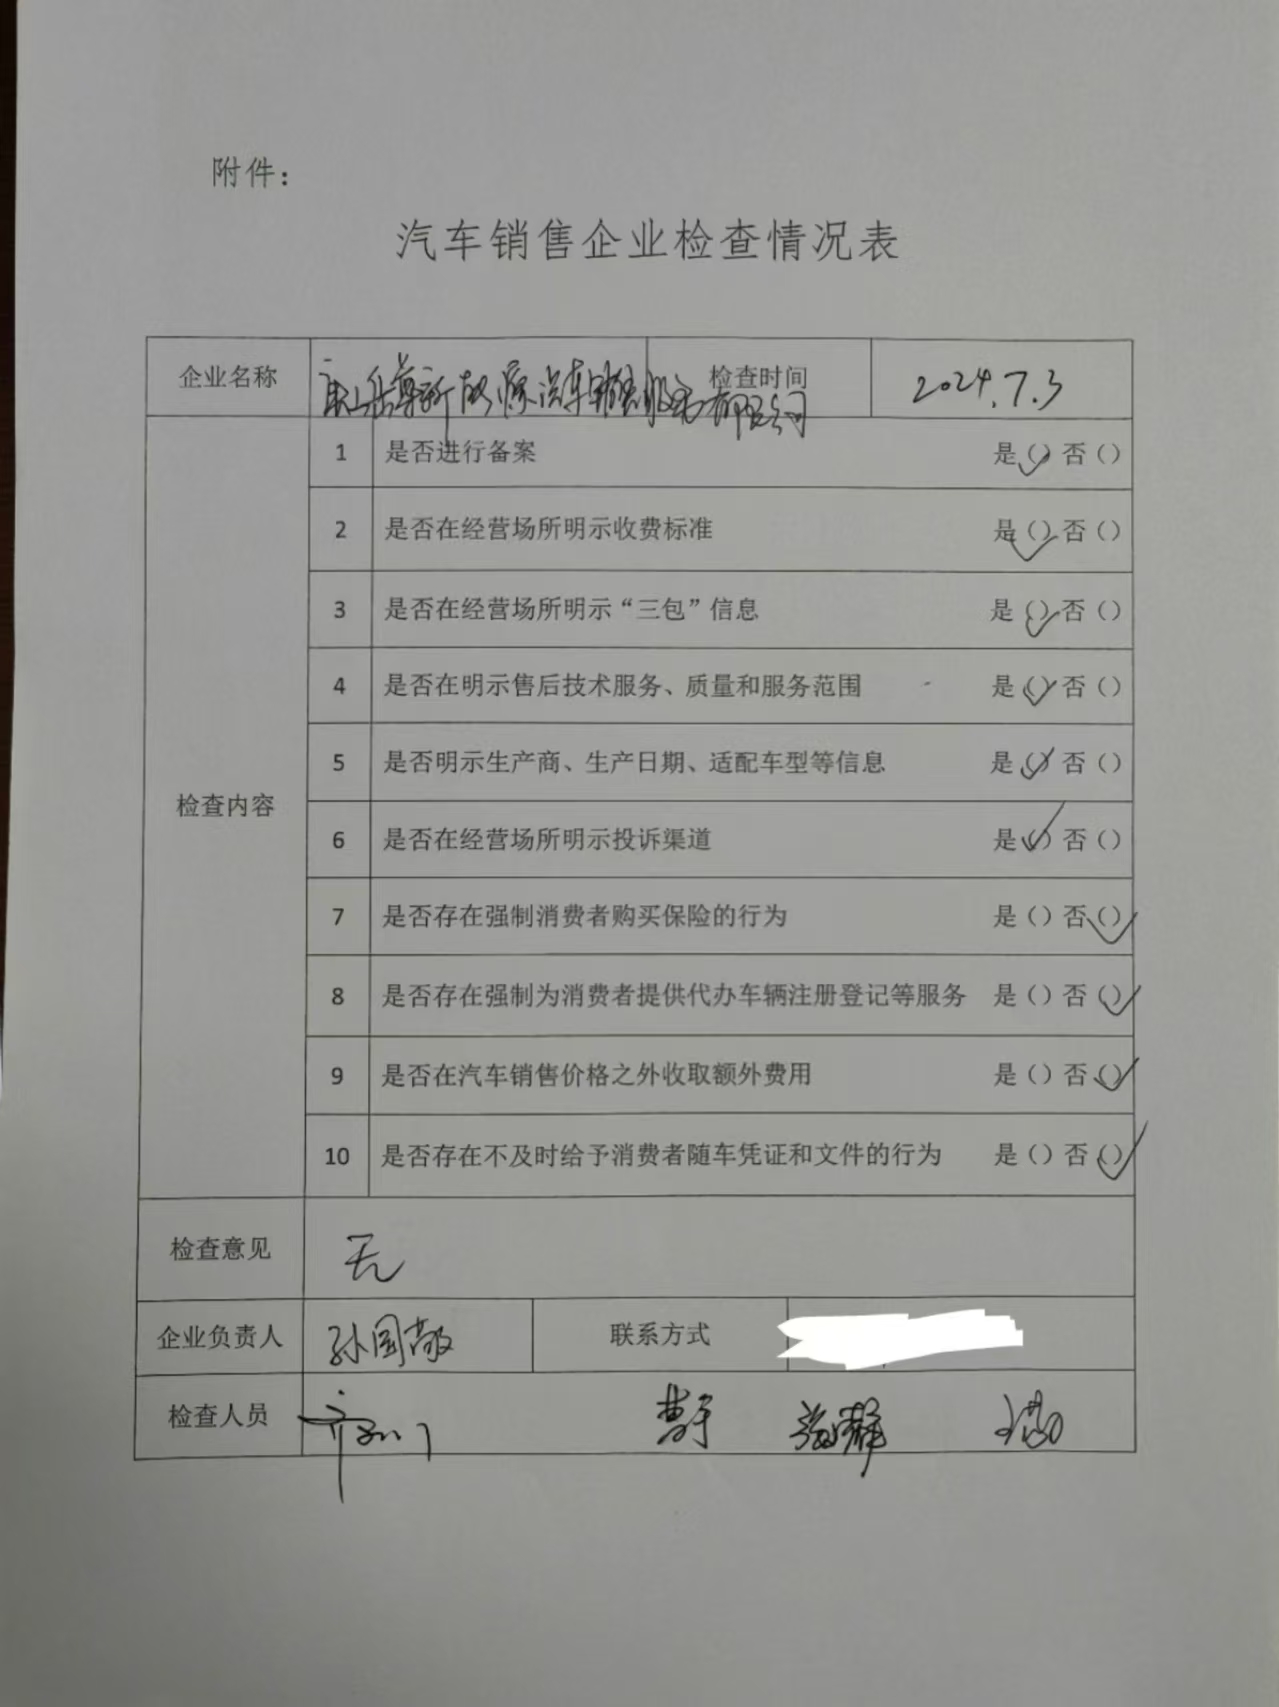 附件：
汽车销售企业检查情况表
企业名称 唐山岳尊新能源汽车销售服务有限公司 检查时间 2024.7.3
检查内容
1 是否进行备案 是(✓) 否()
2 是否在经营场所明示收费标准 是(✓) 否()
3 是否在经营场所明示“三包”信息 是(✓) 否()
4 是否在明示售后技术服务、质量和服务范围 是(✓) 否()
5 是否明示生产商、生产日期、适配车型等信息 是(✓) 否()
6 是否在经营场所明示投诉渠道 是(✓) 否()
7 是否存在强制消费者购买保险的行为 是() 否(✓)
8 是否存在强制为消费者提供代办车辆注册登记等服务 是() 否(✓)
9 是否在汽车销售价格之外收取额外费用 是() 否(✓)
10 是否存在不及时给予消费者随车凭证和文件的行为 是() 否(✓)
检查意见 无
企业负责人 孙国敬 联系方式
检查人员